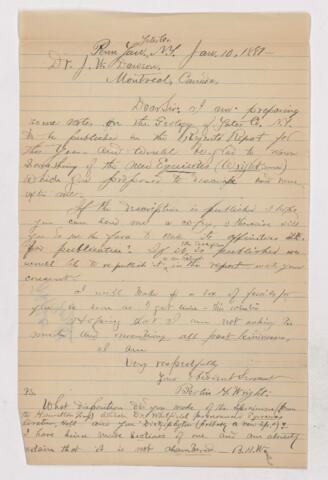 Yates Co.
Penn Yan, N.Y. Jan. 10, 1881-
Dr. J. W. Dawson,
Montreal, Canada.
Dear Sir, I am preparing
some notes on the Geology of Yates Co. N.Y.
to be published in the Report for
this Year and would be glad to know
something of the new Equisetites (Wrightiana)
which you proposed to describe and name
after me.
If the description is published I hope
you can send me a copy, otherwise will
you do me the favor to its affinities etc.
for publication? If it is published we
would like to republish it in the report with your
consent.
I will make up a box of fossils for
you as soon as I get time - this winter
Hoping that I am not asking too
much and
I am
Very respectfully
Your Obedient Servant
Berlin H. Wright.
P.S. What disposition did you make of the specimen (from
the Hamilton) which Dr. Whitfield pronounced
I have been
that it is not B.H.W.